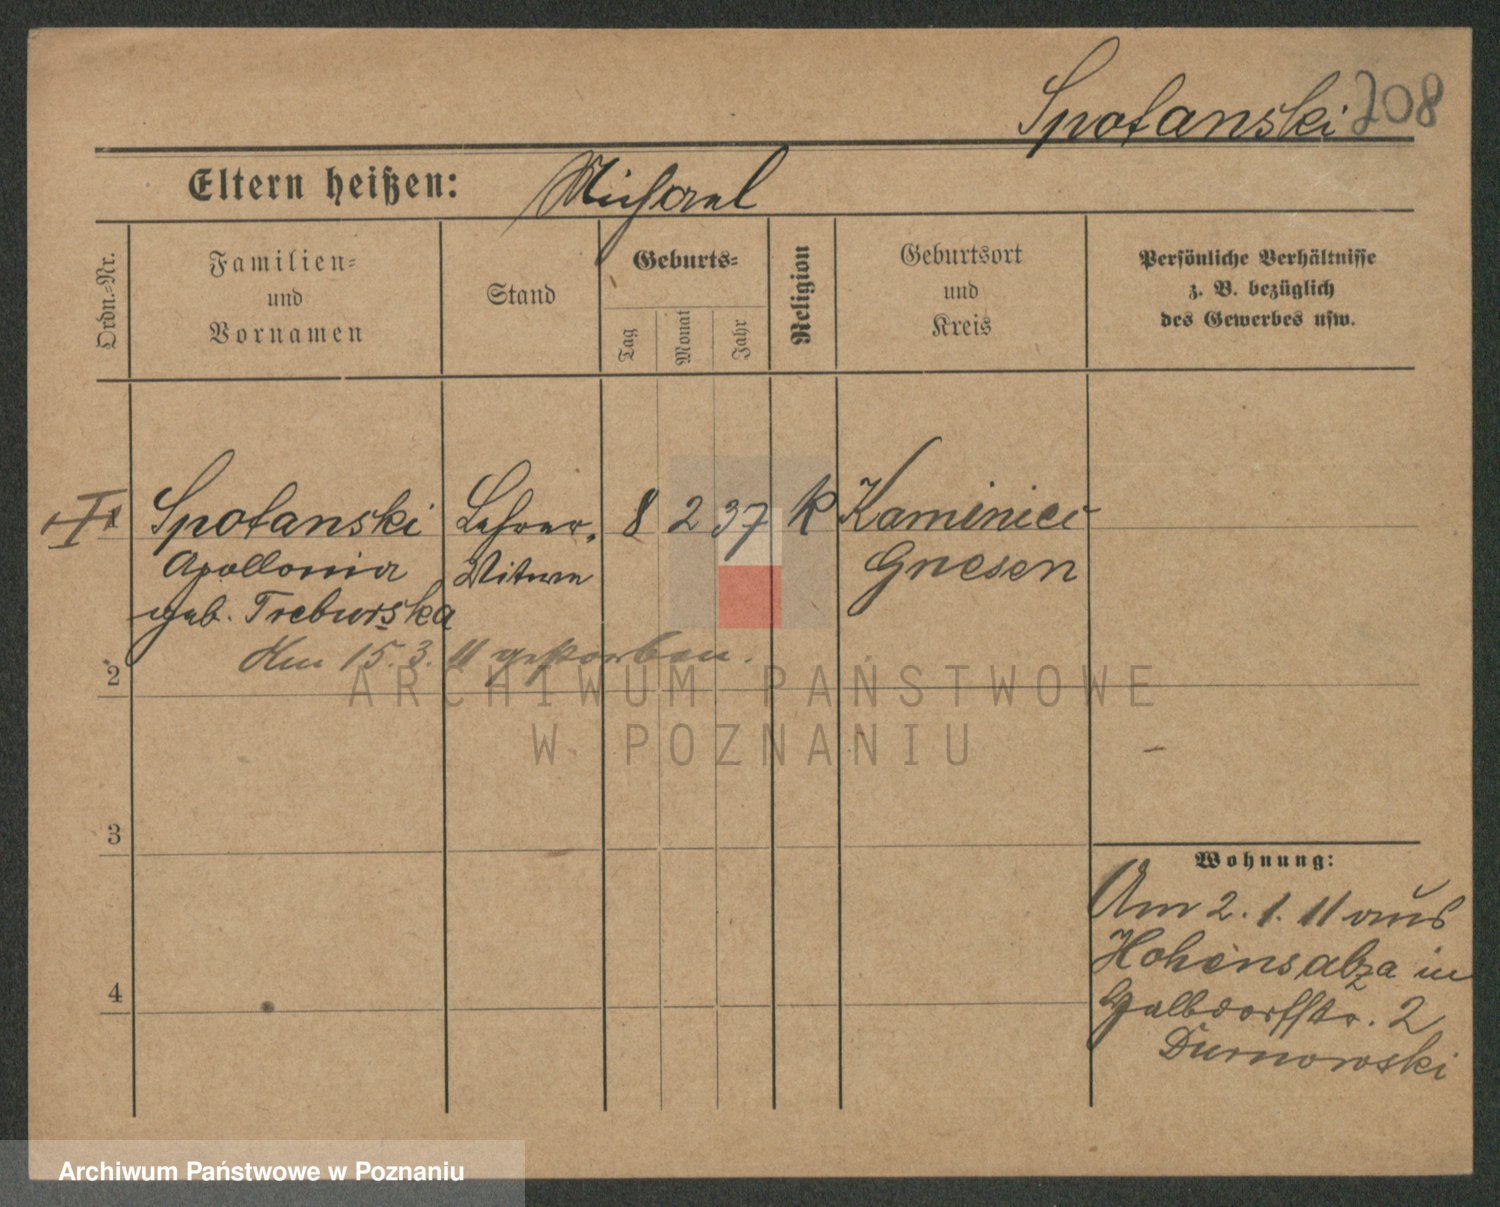 Spotanski 208
Eltern heißen: Michael
Ordn.-Nr.
Familien-
und
Vornamen
Stand
Geburts-
Tag
Monat
Jahr
Religion
Geburtsort
und
Kreis
Persönliche Verhältnisse
z. B. bezüglich
des Gewerbes usw.
1 Spotanski Lehrer- 8 2 37 K Kaminiec
Apollonia Witwe Gnesen
geb. Treburska
Am 15.3.11 gestorben.
2
ARCHIWUM PAŃSTWOWE
W POZNANIU
3
Wohnung:
Am 2.1.11 aus
Hohensalza in
4
str. 2
Durnowski
Archiwum Państwowe w Poznaniu